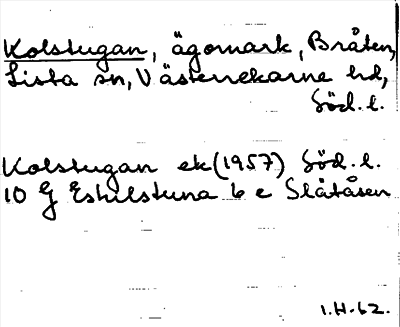 Kolstugan, ägomark, Bråten,
Lista sn, Västerrekarne hd,
Söd. l.
Kolstugan ek (1957) Söd. l.
10 G Eskilstuna 6 e Slåtåsen
I.H.62.